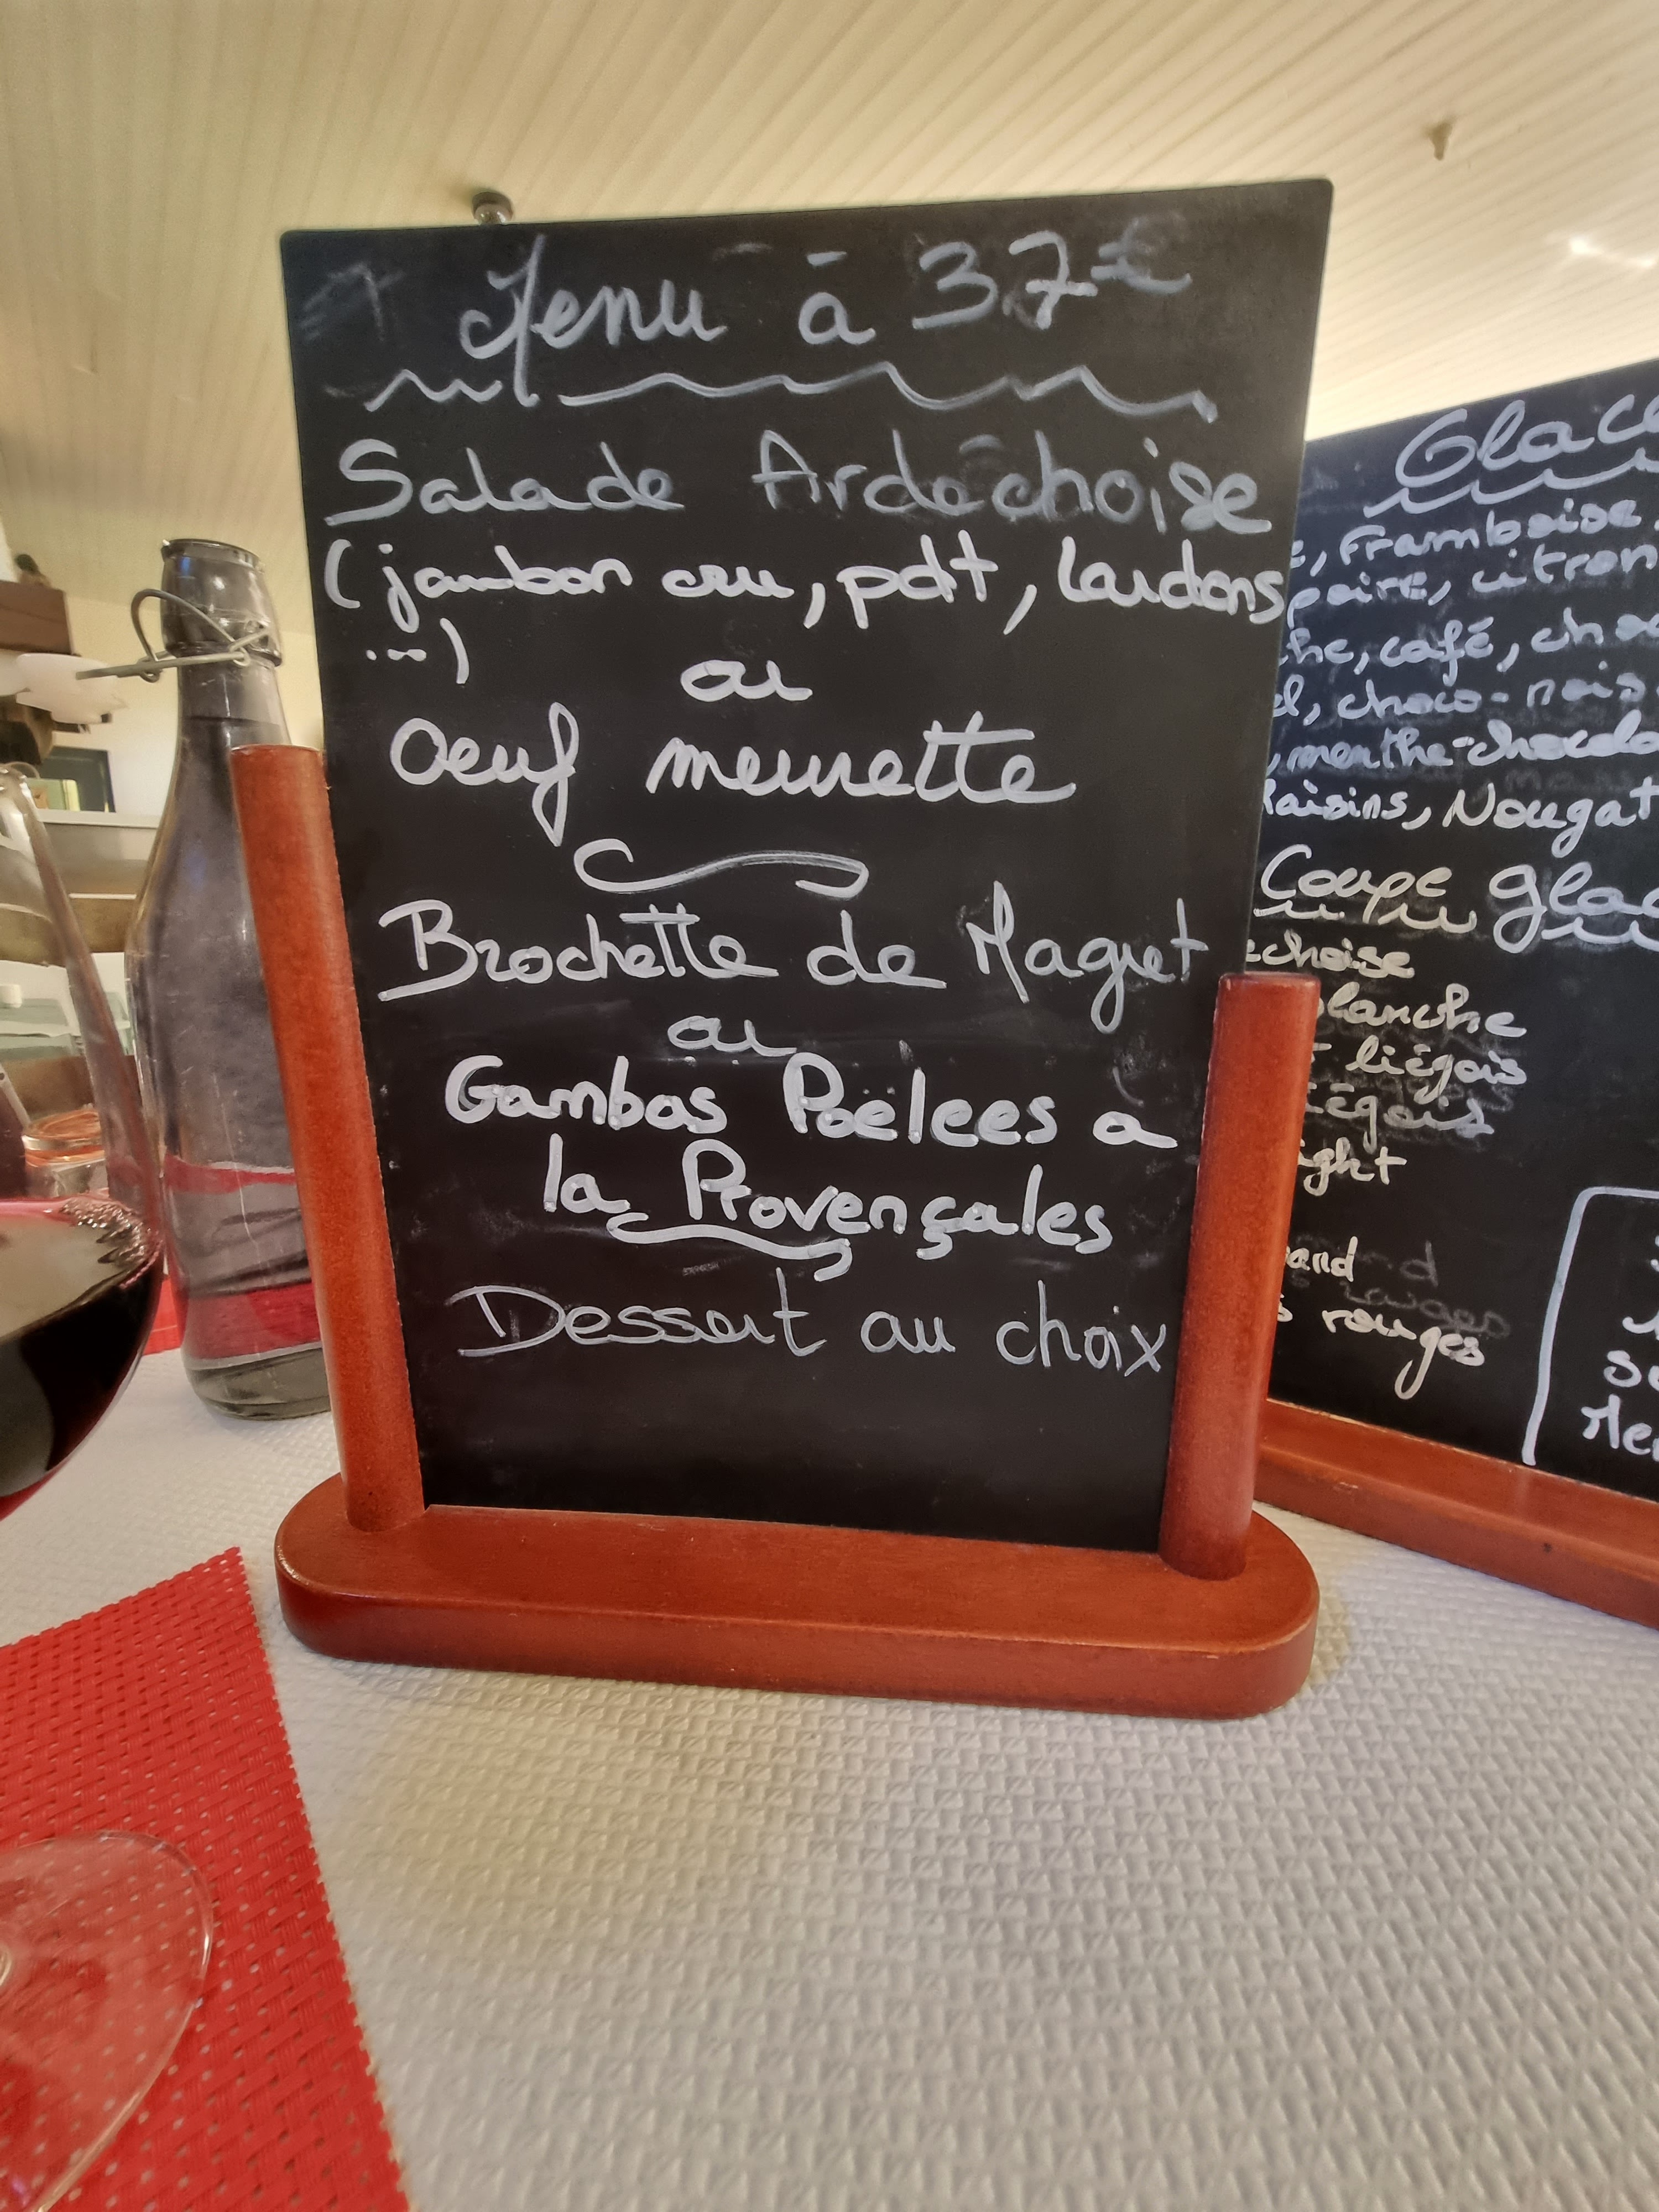 Menu à 37€
Salade Ardèchoise
(jambon cru, pdt, lardons
...)
ou
Oeuf meurette
Brochette de Magret
ou
Gambas Poëlees a
la Provençales
Dessert au choix
Glace
, Framboise,
poire, citron
café,
choco-nois
menthe-chocola
Raisins, Nougat
Coupe glac
echoise
blanche
liégois
iégois
ight
and
rouges